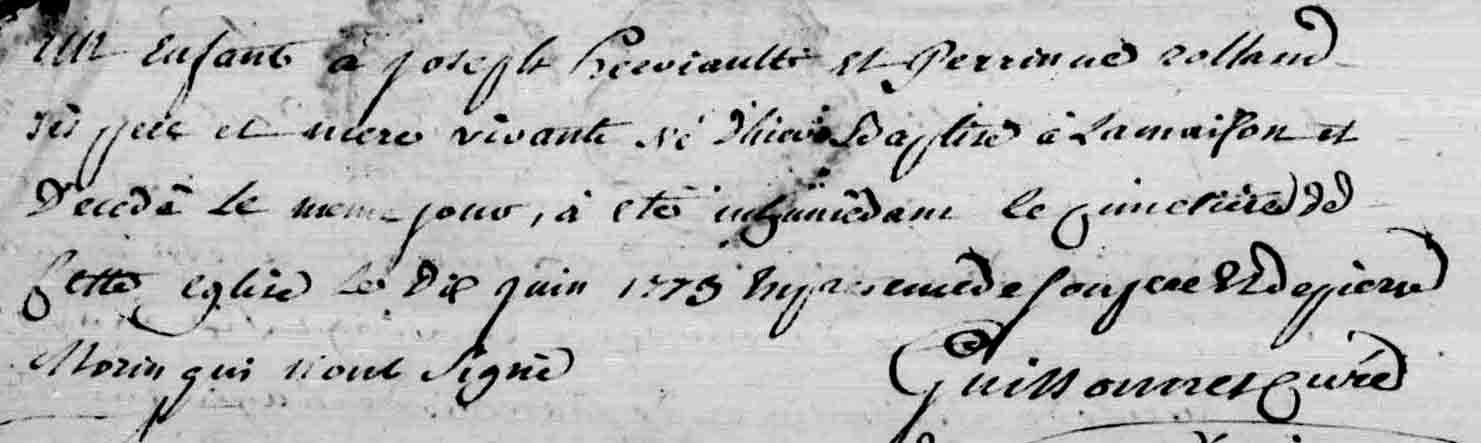 un enfant à joseph heriault et Perrinne rolland
ses pere et mere vivants né d'hier Baptisé à Lamaison et
Decedé Le meme jour, à eté inhumé dans le cimetiere de
Cette eglise Le Dix juin 1773 En presence de son pere Et de pierre
Morin qui n'ont Signé
Guillonnet Curé